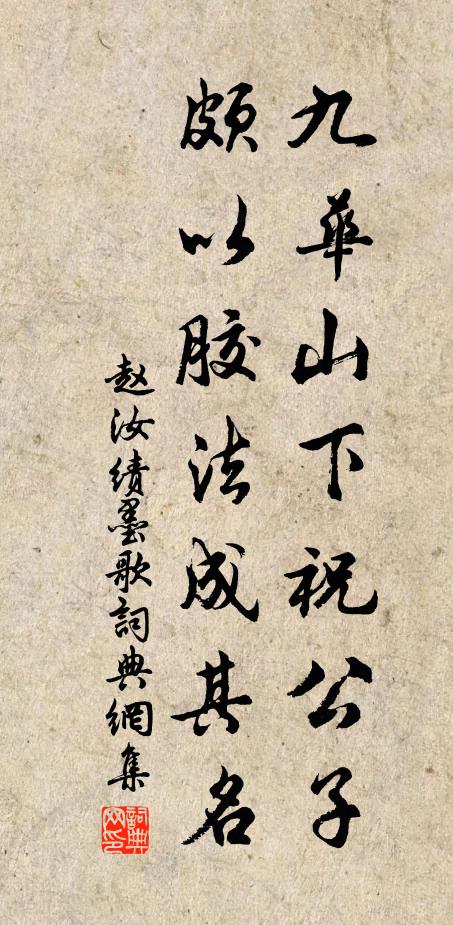 九華山下祝公子
頗以胶法成其名
赵汝绩墨歌詞典網集
詞典网印